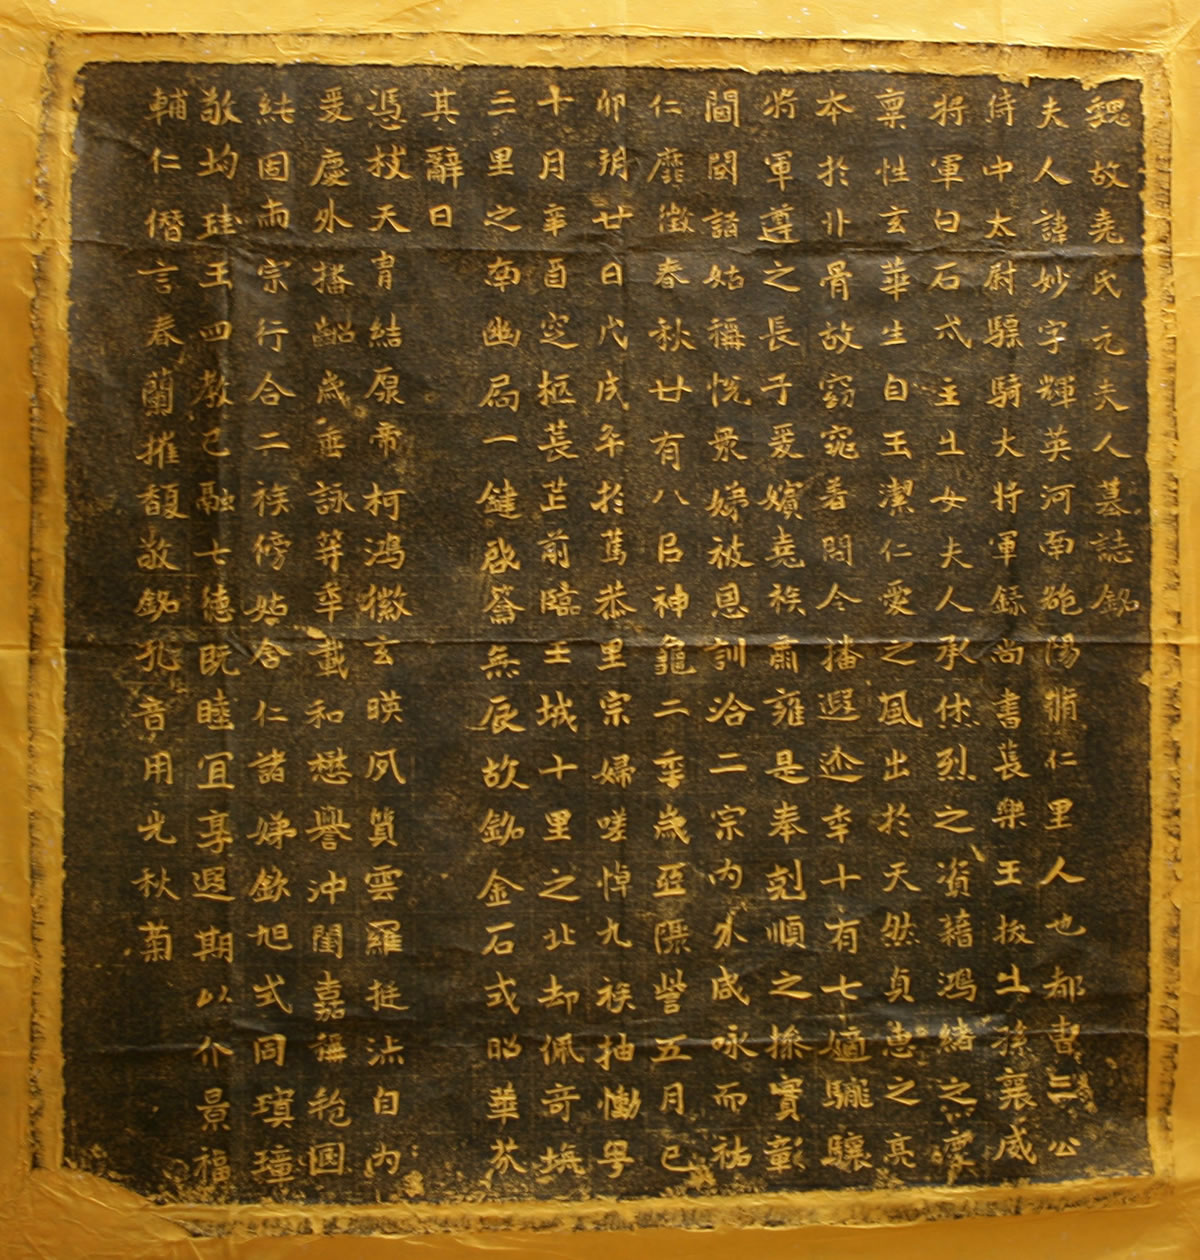 魏故堯氏元夫人墓誌銘
夫人諱妙字輝英河南龍陽脩仁里人也都督三公
侍中太尉驃騎大將軍錄尚書長樂王拔之孫襄威
將軍白石戍主之女夫人承休烈之資藉鴻緒之慶
稟性玄華生自玉潔仁愛之風出於天然貞惠之亮
本於卝骨故窈窕著問令播遐迩年十有七適驪驤
將軍遵之長子爰嬪堯族肅雍是奉剋順之操實彰
閨閫諸姑稱悦衆娣被恩訓洽二宗内外咸咏而祐
仁靡徵春秋廿有八以神龜二年歲亞隰訾五月己
卯朔廿日戊戌卒於篤恭里宗婦嗟悼九族抽慟粤
十月辛酉空柩萇芷前臨王城十里之北却佩奇墳
二里之南幽局一鍵啓蓥無辰故銘金石式昭華芬
其辭曰
憑枝天胄結原帝柯鴻徽玄暎夙質雲羅挺淑自内
爰慶外播齠歲垂詠筓年載和懋譽沖閨嘉稱乾囩
純固而宗行合二族傍姑含仁諸娣欽旭式同璸璋
敬均珪王四教已融七德既睦宜享遐期以介景福
輔仁僭言春蘭摧馥敬銘孔音用光秋菊